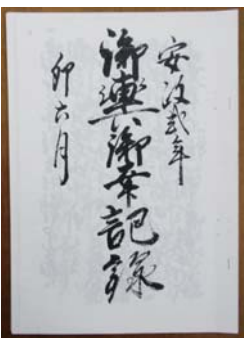 安政弐年
御輿御幸記録
卯六月